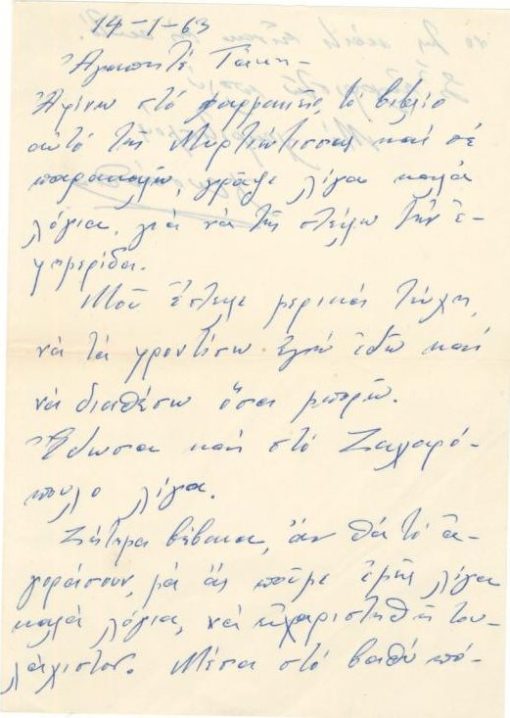 14-1-63
Ἀγαπητέ Τάκη-
Ἀφίνω στό φαρμακεῖο, τό βιβλίο
αὐτό τῆς Μυρτιώτισσας καί σέ
παρακαλῶ, γράψε λίγα καλά
λόγια, γιά νά τῆς στείλω τήν ἐ-
φημερίδα.
Μοῦ ἔστειλε μερικά τεύχη
νά τά φροντίσω ἐγώ ἐδῶ καί
νά διαθέσω ὅσα μπορῶ.
Ἔδωσα καί στό Ζαχαρό-
πουλο λίγα.
Ζήτημα βέβαια, ἄν θά τό ἀ-
γοράσουν, μά ἄς ποῦμε ἐμεῖς λίγα
καλά λόγια, νά εὐχαριστηθῆ του-
λάχιστον. Μέσα στό βαθύ πό-